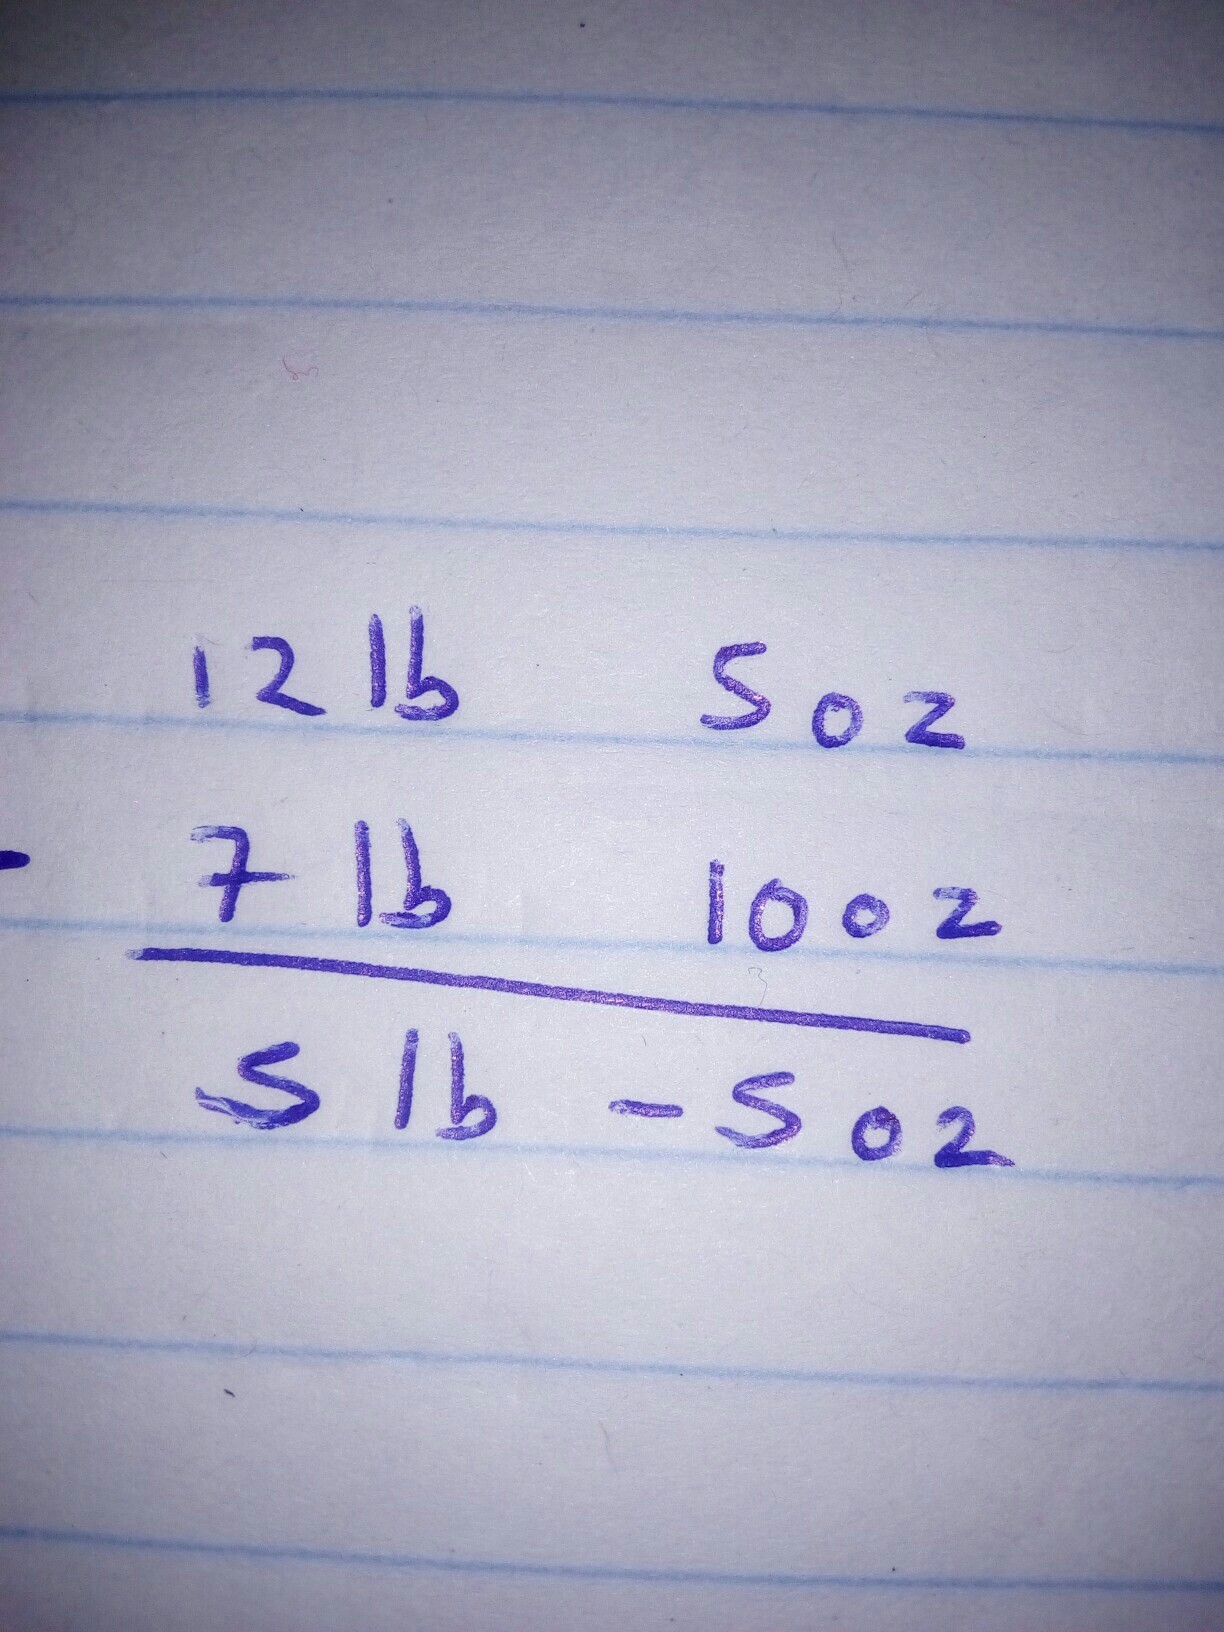 12 lb 5 oz
- 7 lb 10 oz
5 lb - 5 oz